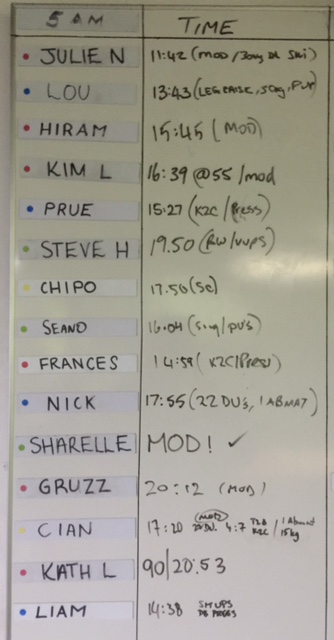 5 AM TIME
JULIE N 11:42 (MOD /30kg DL Ski)
LOU 13:43 (LEG RAISE, 50kg, PUP)
HIRAM 15:45 (MOD)
KIM L 16:39 @55 /mod
PRUE 15:27 (K2C /Press)
STEVE H 19.50 (RW/VUPS)
CHIPO 17.50 (SC)
SEANO 16.04 (Sing/PU's)
FRANCES 14:58 (K2C/Press)
NICK 17:55 (22 DU'S, 1 ABMAT)
SHARELLE MOD! ✓
GRUZZ 20:12 (MOD)
CIAN 17:20 (MOD) 4:7 T2B K2C / 1 Abmat 15kg
KATH L 90|20:53
LIAM 14:38 SITUPS DB PRESS